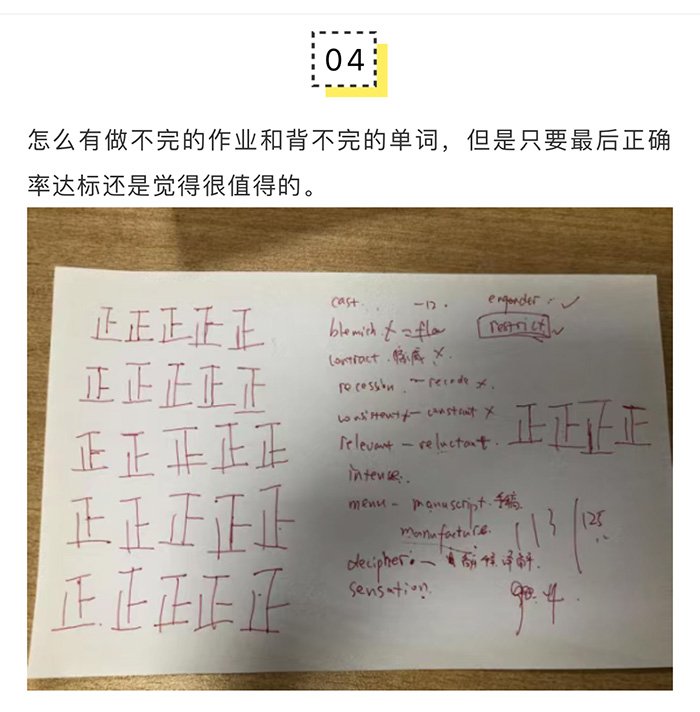 04
怎么有做不完的作业和背不完的单词，但是只要最后正确
率达标还是觉得很值得的。
正正正正正
正正正正正
正正正正正
正正正正正
正正正正正
cast. -12.
blemish x = flaw
contract. x.
recession. - recede x.
consistent x - constant x
relevant - reluctant.
intense.
menu - manuscript. 手稿.
manufacture.
decipher. - 译解.
sensation.
engender. ✓
restrict ✓
正正正正
113 / 125
90.4.